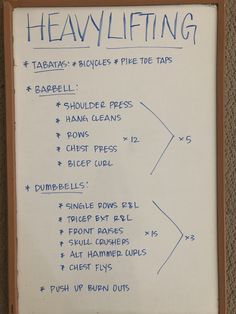 HEAVYLIFTING
* TABATAS: * BICYCLES * PIKE TOE TAPS
* BARBELL:
* SHOULDER PRESS
* HANG CLEANS
* ROWS x 12 x 5
* CHEST PRESS
* BICEP CURL
* DUMBBELLS:
* SINGLE ROWS R&L
* TRICEP EXT R&L
* FRONT RAISES x 15 x 3
* SKULL CRUSHERS
* ALT HAMMER CURLS
* CHEST FLYS
* PUSH UP BURN OUTS